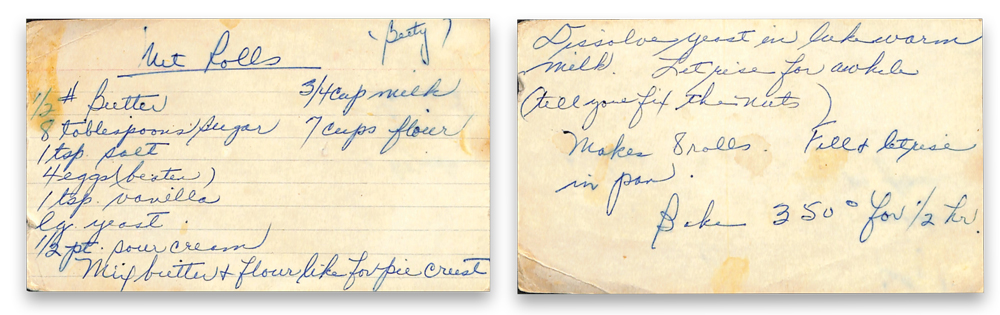 (Betty)
Nut Rolls
1/2 # Butter 3/4 cup milk
8 tablespoons sugar 7 cups flour
1 tsp. salt
4 eggs (beaten)
1 tsp. vanilla
lg. yeast
1/2 pt. sour cream
Mix butter & flour like for pie crust
Dissolve yeast in luke warm
milk. Let rise for awhile
(till you fix the nuts)
Makes 8 rolls. Fill & let rise
in pan.
Bake 350° for 1/2 hr.